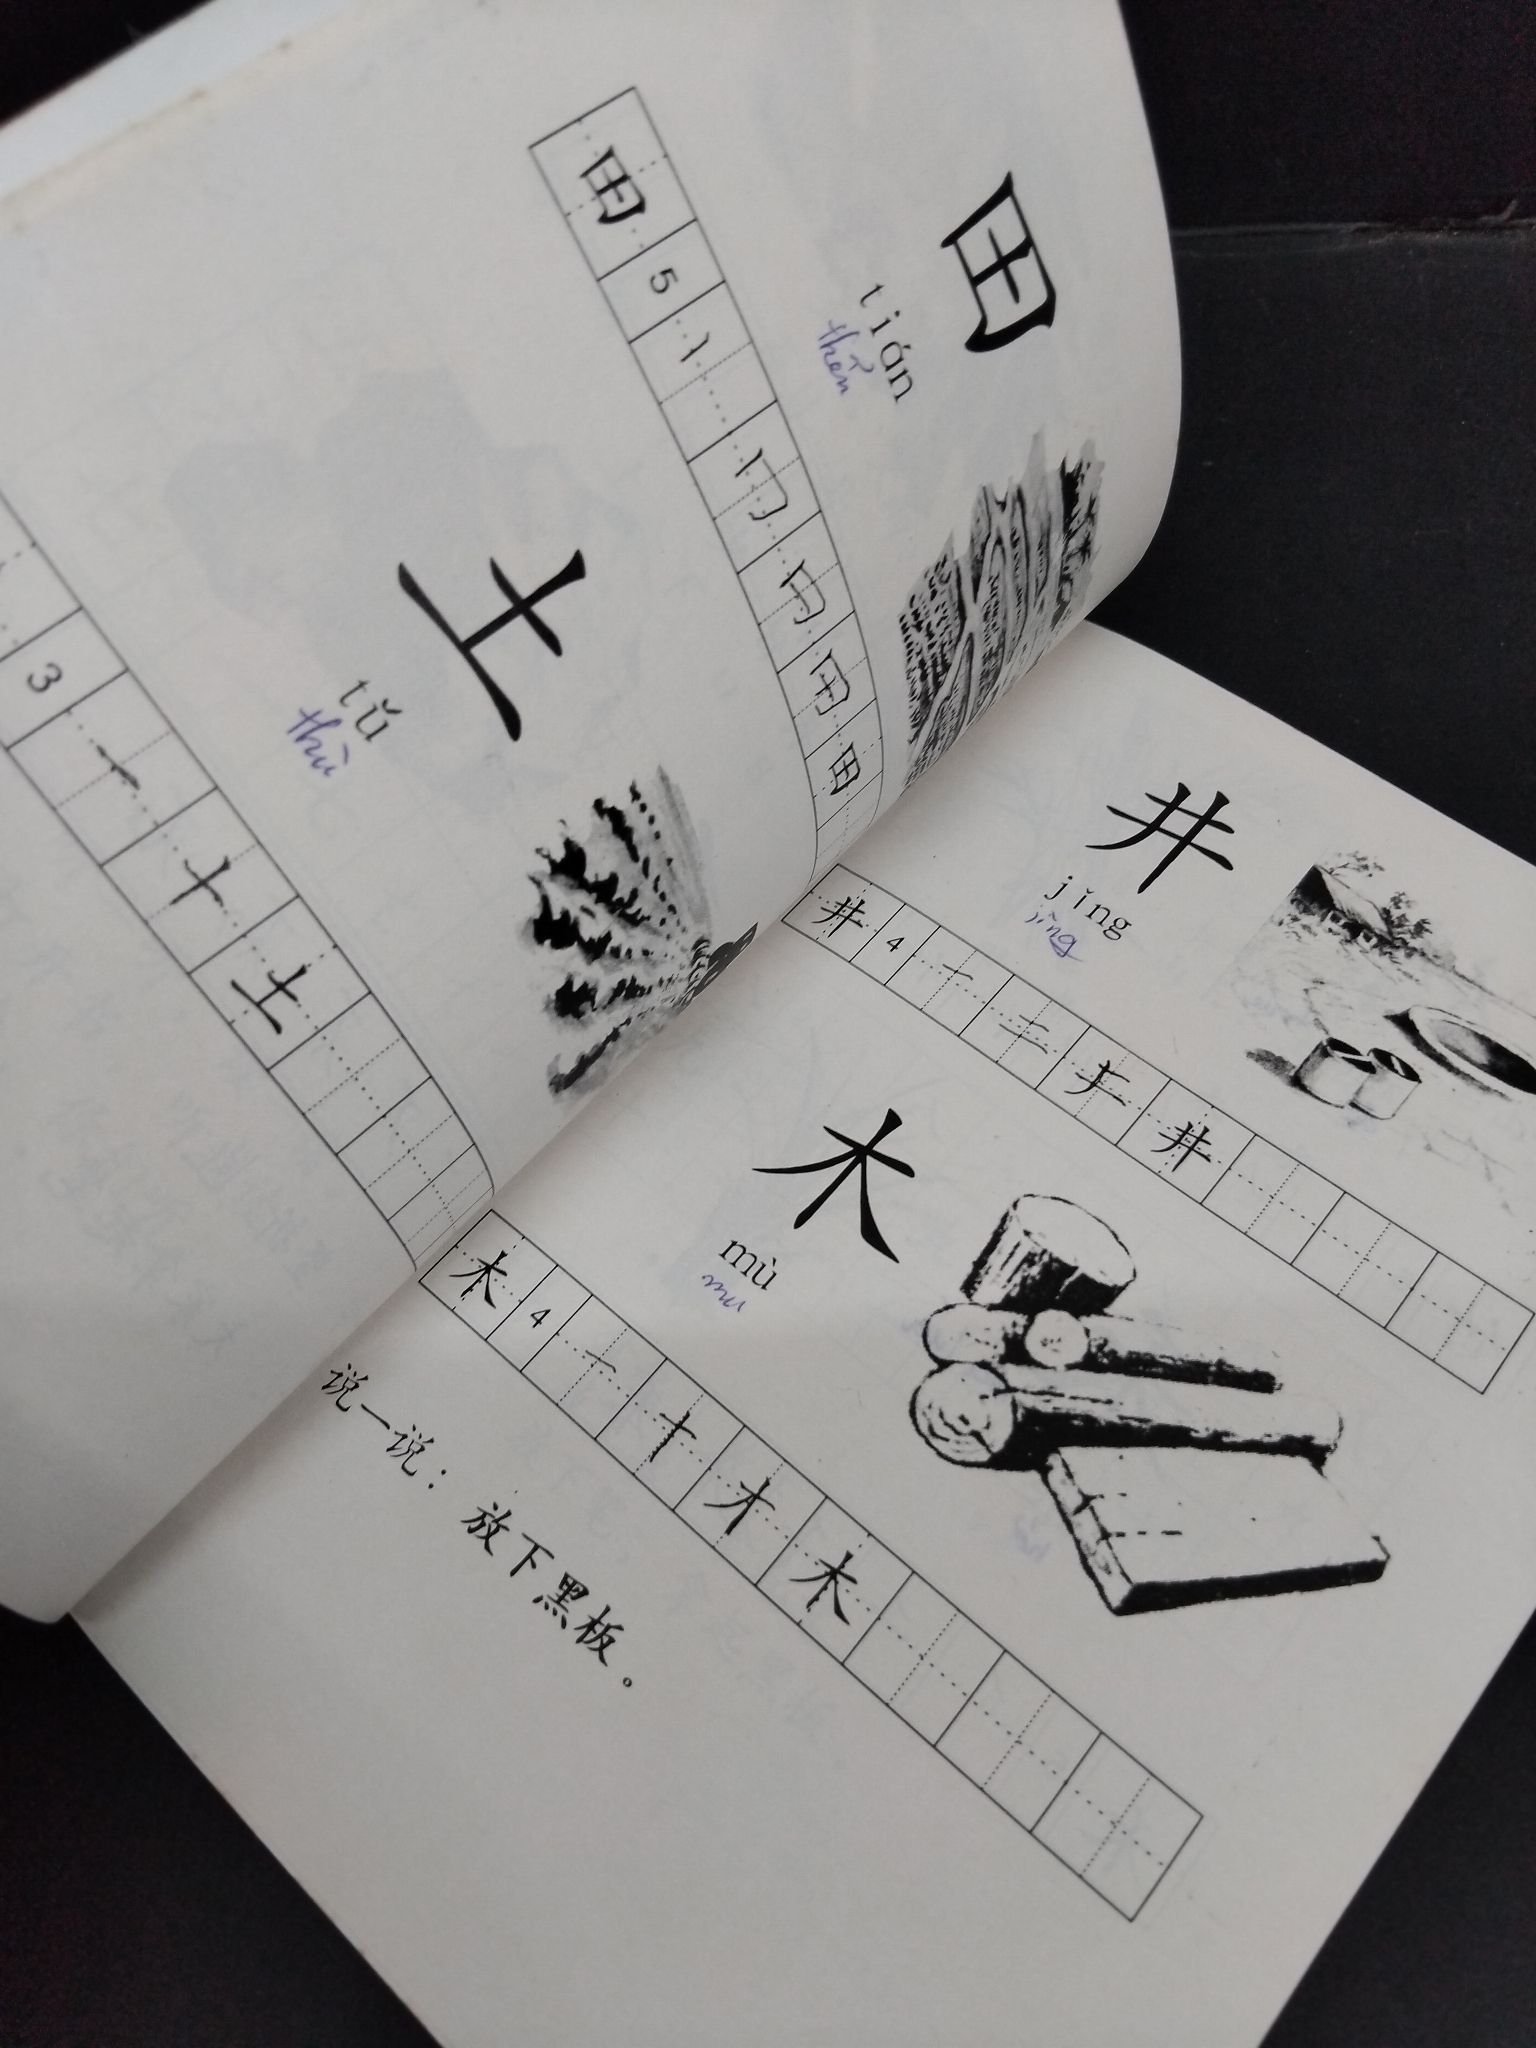 田
tián
thền
田 5 丨 冂 冃 田 田
土
tǔ
thù
3 一 十 土
井
jǐng
jỉng
井 4 一 二 丰 井
木
mù
mu
木 4 一 十 才 木
说一说：放下黑板。